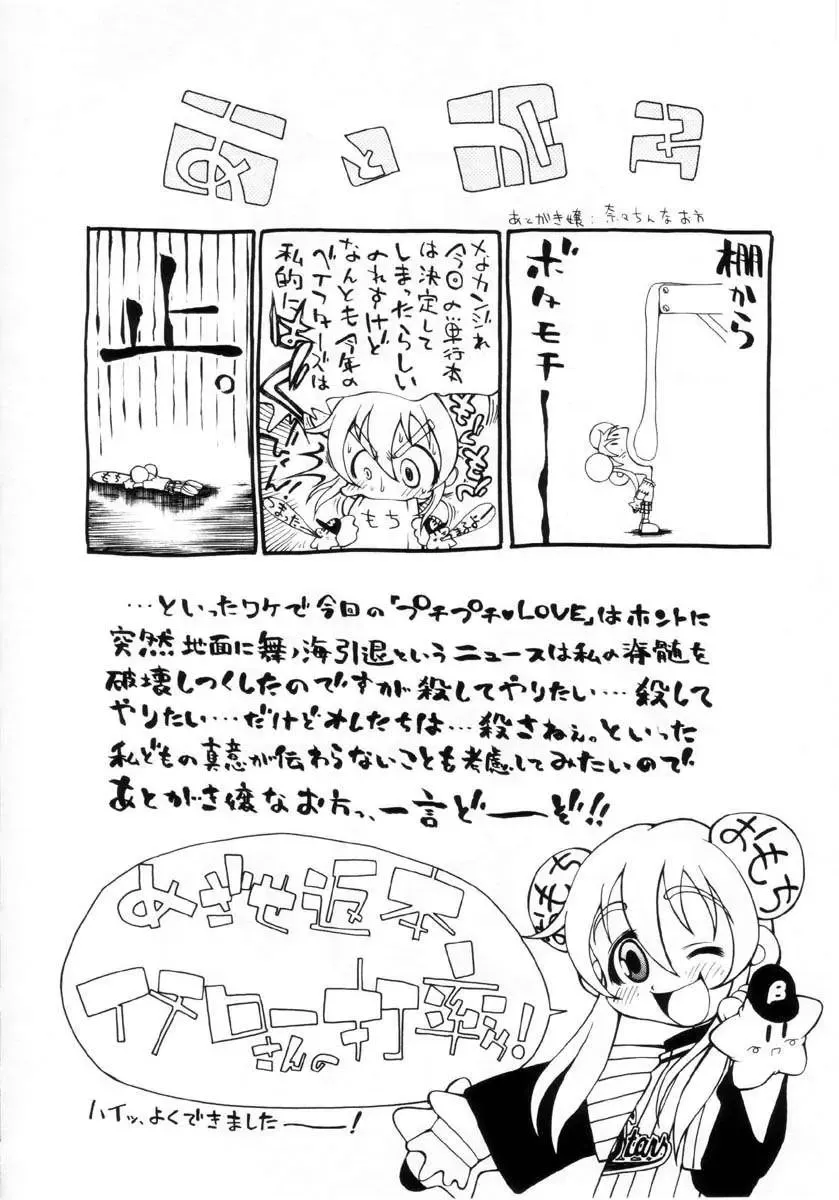 あとがき
あとがき嬢:奈々ちんなお方
棚から
ボタモチー
なカンジね
今回の単行本
は決定して
しまったらしい
のれすけど
なんとも今年の
ベイスターズは
私的に
もち
しまった
止。
もち
…といったワケで今回の「プチプチ♥LOVE」はホントに
突然地面に舞ノ海引退というニュースは私の脊髄を
破壊しつくしたのですが殺してやりたい…殺して
やりたい…だけどオレたちは…殺さねぇ。といった
私どもの真意が伝わらないことも考慮してみたいので
あとがき嬢なお方っ、一言どーぞ!!
おもち
おもち
めざせ返本
イチローさんの打率ッ!
B
Stars
ハイッ、よくできました――!